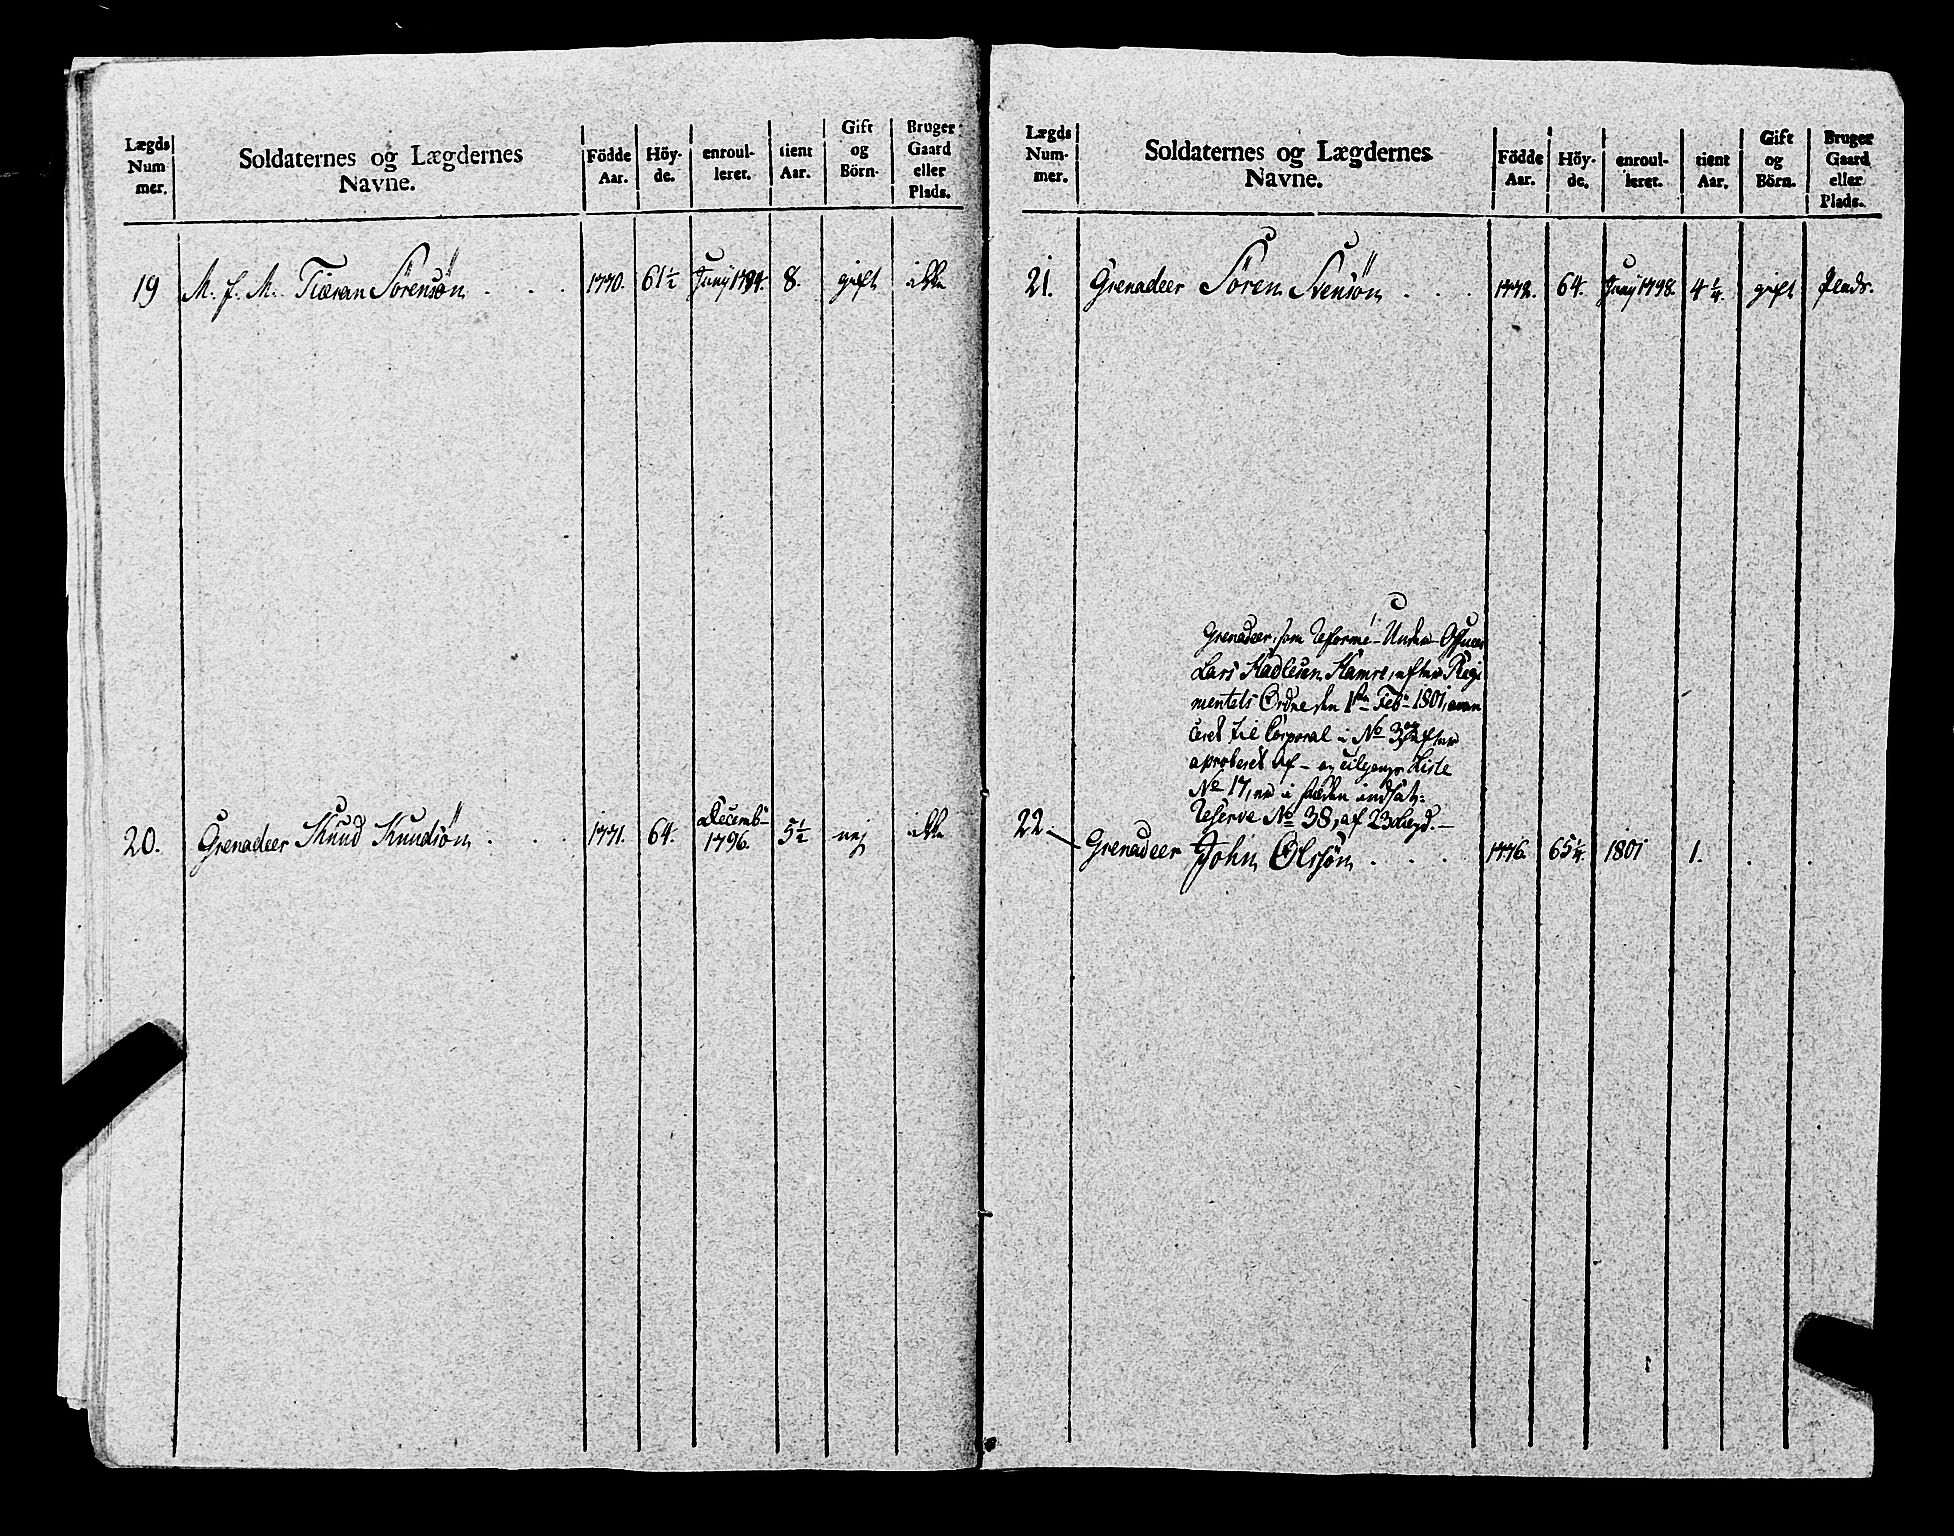 Lægds Num mer. Soldaternes og Lægdernes Navne. Födde Aar. Höy- de. enroul- leret. tient Aar. Gift og Börn. Bruger Gaard eller Plads.
19 M. f. M. Tiæran Sörensön . . . 1770. 61 1/2 Junj 1794. 8. gift ikke
20. Grenadeer Knud Knudsön . . . 1771. 64. Decemb- 1796. 5 1/2 nej ikke
Lægds Num- mer. Soldaternes og Lægdernes Navne. Födde Aar. Höy- de. enroul- leret. tient Aar. Gift og Börn. Bruger Gaard eller Plads.
21. Grenadeer Sören Svensön . . . 1772. 64. Junj 1798. 4 1/4. gift Plads.
Grenadeer, som Reformé-Under-Officeer
Lars Hamre, efter Regi
mentets Ordre den 1ste Feb- 1801, avan
ceret til Corporal i No 3, efter
aproberet Af- og tilgangs Liste
No 17, er i stæden indsat:
Reserve No 38, af 23de Lægd.-
22 Grenadeer John Olssön . . . 1776. 65 1/4. 1801 1. . .